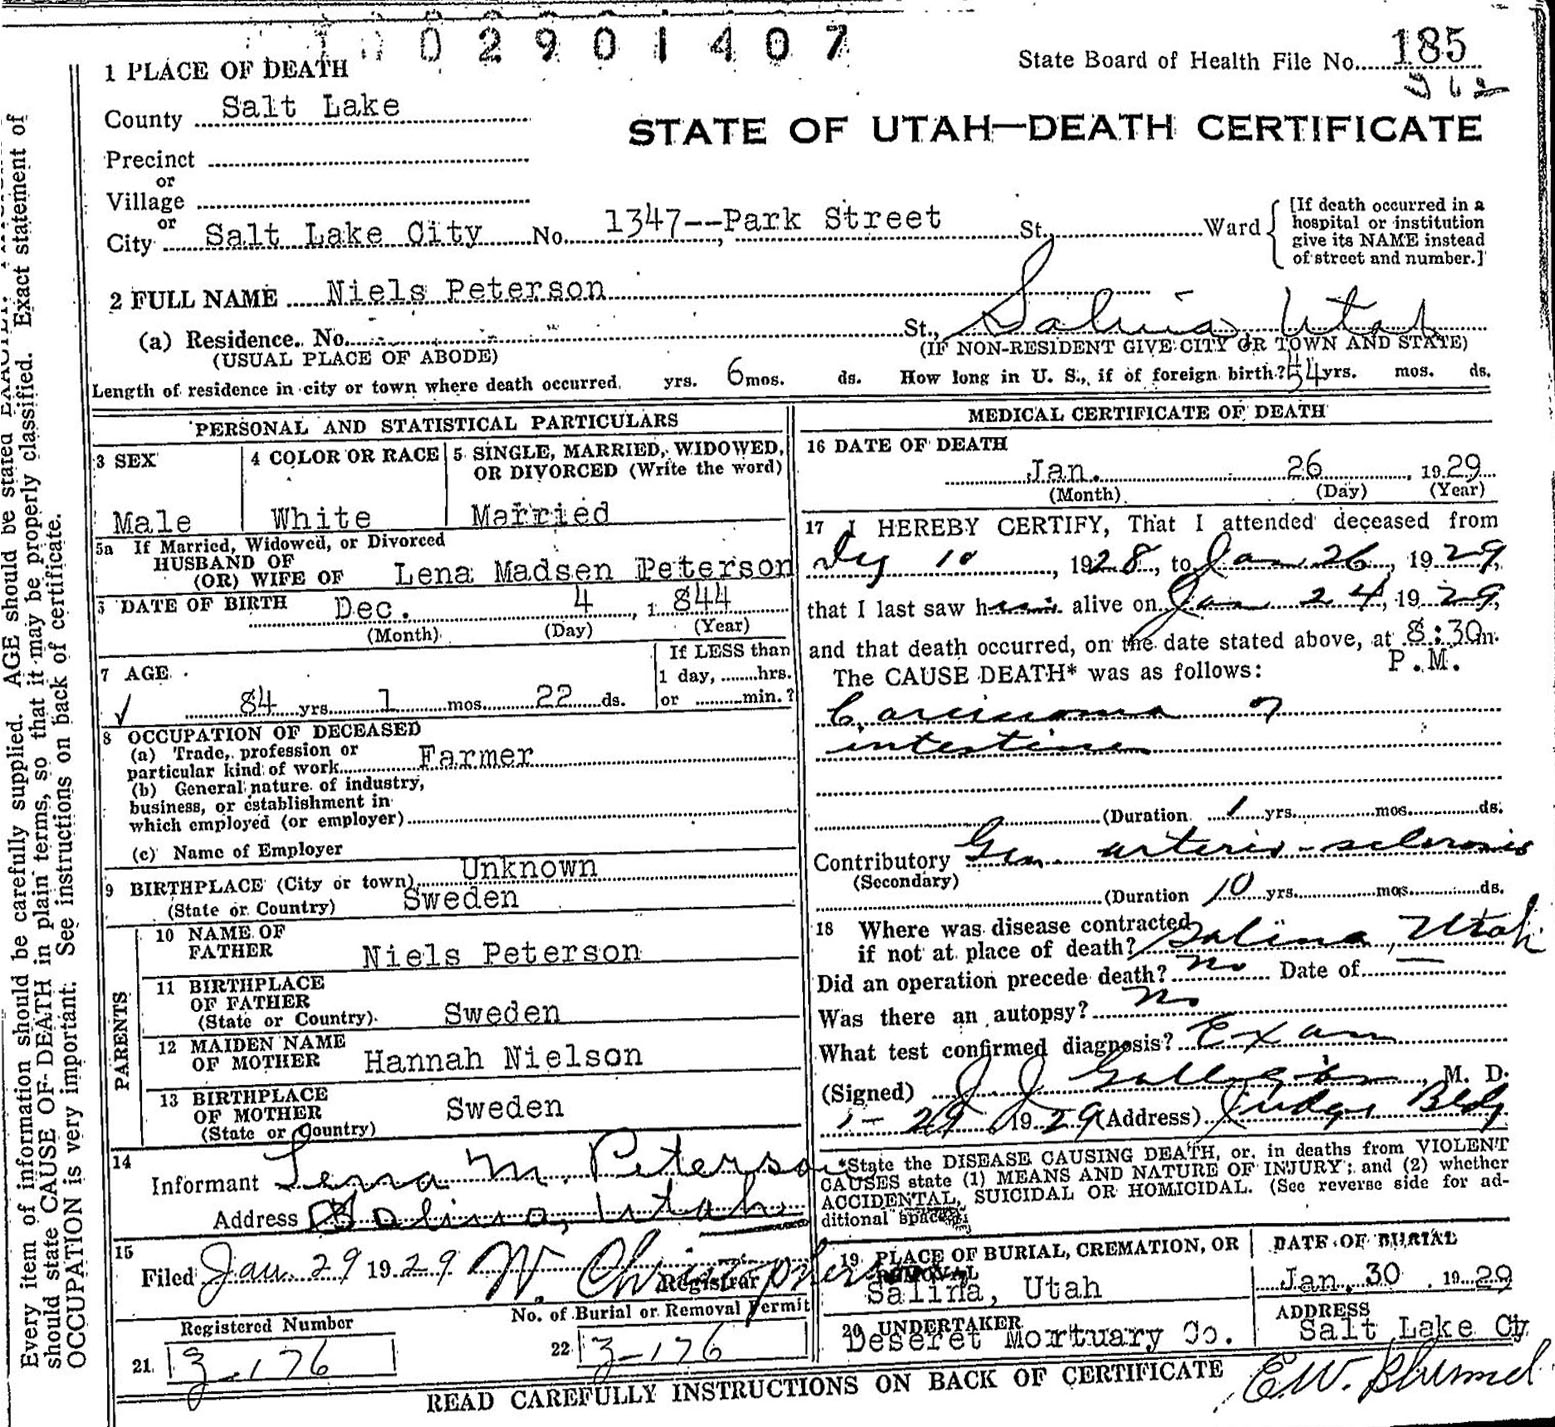 02901407
State Board of Health File No. 185
362
1 PLACE OF DEATH
County Salt Lake
STATE OF UTAH—DEATH CERTIFICATE
Precinct
or
Village
or
City Salt Lake City No. 1347--Park Street St., Ward
[If death occurred in a
hospital or institution
give its NAME instead
of street and number.]
2 FULL NAME Niels Peterson
(a) Residence. No. St., Salina, Utah
(USUAL PLACE OF ABODE) (IF NON-RESIDENT GIVE CITY OR TOWN AND STATE)
Length of residence in city or town where death occurred yrs. 6 mos. ds. How long in U. S., if of foreign birth? 54 yrs. mos. ds.
PERSONAL AND STATISTICAL PARTICULARS
3 SEX
Male
4 COLOR OR RACE
White
5 SINGLE, MARRIED, WIDOWED,
OR DIVORCED (Write the word)
Married
5a If Married, Widowed, or Divorced
HUSBAND OF
(OR) WIFE OF Lena Madsen Peterson
DATE OF BIRTH Dec. 4, 1 844
(Month) (Day) (Year)
7 AGE
84 yrs. 1 mos. 22 ds.
If LESS than
1 day, ........hrs.
or .........min.?
8 OCCUPATION OF DECEASED
(a) Trade, profession or
particular kind of work Farmer
(b) General nature of industry,
business, or establishment in
which employed (or employer)
(c) Name of Employer
9 BIRTHPLACE (City or town) Unknown
(State or Country) Sweden
PARENTS
10 NAME OF
FATHER Niels Peterson
11 BIRTHPLACE
OF FATHER
(State or Country) Sweden
12 MAIDEN NAME
OF MOTHER Hannah Nielson
13 BIRTHPLACE
OF MOTHER
(State or Country) Sweden
14
Informant Lena M. Peterson
Address Salina, Utah
15
Filed Jan. 29 1929 W. Christophers
Registrar
No. of Burial or Removal Permit
Registered Number
21. 3-176
22 3-176
MEDICAL CERTIFICATE OF DEATH
16 DATE OF DEATH
Jan. 26, 1929
(Month) (Day) (Year)
17 I HEREBY CERTIFY, That I attended deceased from
10, 1928, to Jan 26, 1929,
that I last saw him alive on Jan 24, 1929,
and that death occurred, on the date stated above, at 8:30 m.
P.M.
The CAUSE DEATH* was as follows:
Carcinoma of
intestine
(Duration 1 yrs. mos. ds.
Contributory Gen. arterio-sclerosis
(Secondary)
(Duration 10 yrs. mos. ds.
18 Where was disease contracted
if not at place of death? Salina, Utah
Did an operation precede death? no Date of —
Was there an autopsy? no
What test confirmed diagnosis? Exam
(Signed) J J Galligan, M. D.
1-29 1929 (Address) Judge Bldg
*State the DISEASE CAUSING DEATH, or, in deaths from VIOLENT
CAUSES state (1) MEANS AND NATURE OF INJURY; and (2) whether
ACCIDENTAL, SUICIDAL OR HOMICIDAL. (See reverse side for ad-
ditional space.)
19 PLACE OF BURIAL, CREMATION, OR
REMOVAL
Salina, Utah
DATE OF BURIAL
Jan. 30, 1929
20 UNDERTAKER
Deseret Mortuary Co.
ADDRESS
Salt Lake Cty
READ CAREFULLY INSTRUCTIONS ON BACK OF CERTIFICATE
E.W.
Every item of information should be carefully supplied. AGE should be stated EXACTLY.
should state CAUSE OF DEATH in plain terms, so that it may be properly classified. Exact statement of
OCCUPATION is very important. See instructions on back of certificate.